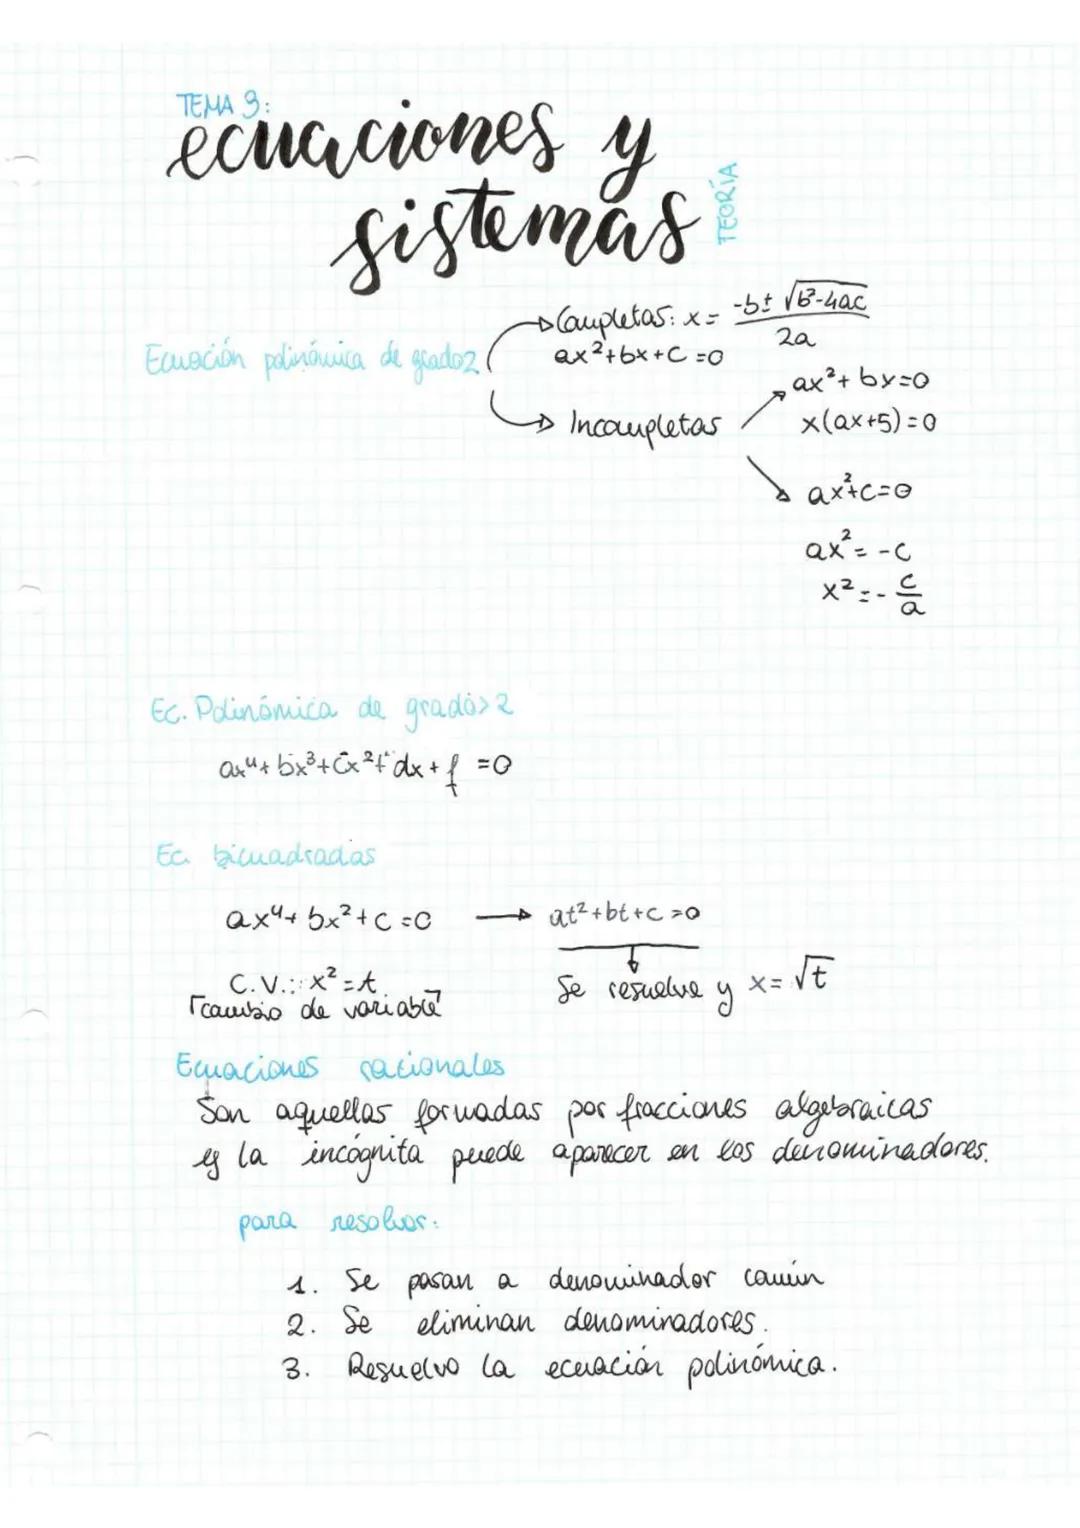 TEMA 3:
ecuaciones y
sistemas
TEORÍA
Ecuación polinómica de grado 2
Completas: x = -b ± √b²-4ac / 2a
ax²+bx+c=0
Incompletas
ax²+bx=0
x(ax+5)=0
ax²+c=0
ax²=-c
x²=-c/a
Ec. Polinómica de grado>2
ax⁴+bx³+cx²+dx+f=0
Ec. bicuadradas
ax⁴+bx²+c=0 → at²+bt+c=0
C.V.: x²=t
Se resuelve y x=√t
⌈cambio de variable⌉
Ecuaciones racionales
Son aquellas formadas por fracciones algebraicas
y la incógnita puede aparecer en los denominadores.
para resolver:
1. Se pasan a denominador común
2. Se eliminan denominadores.
3. Resuelvo la ecuación polinómica.